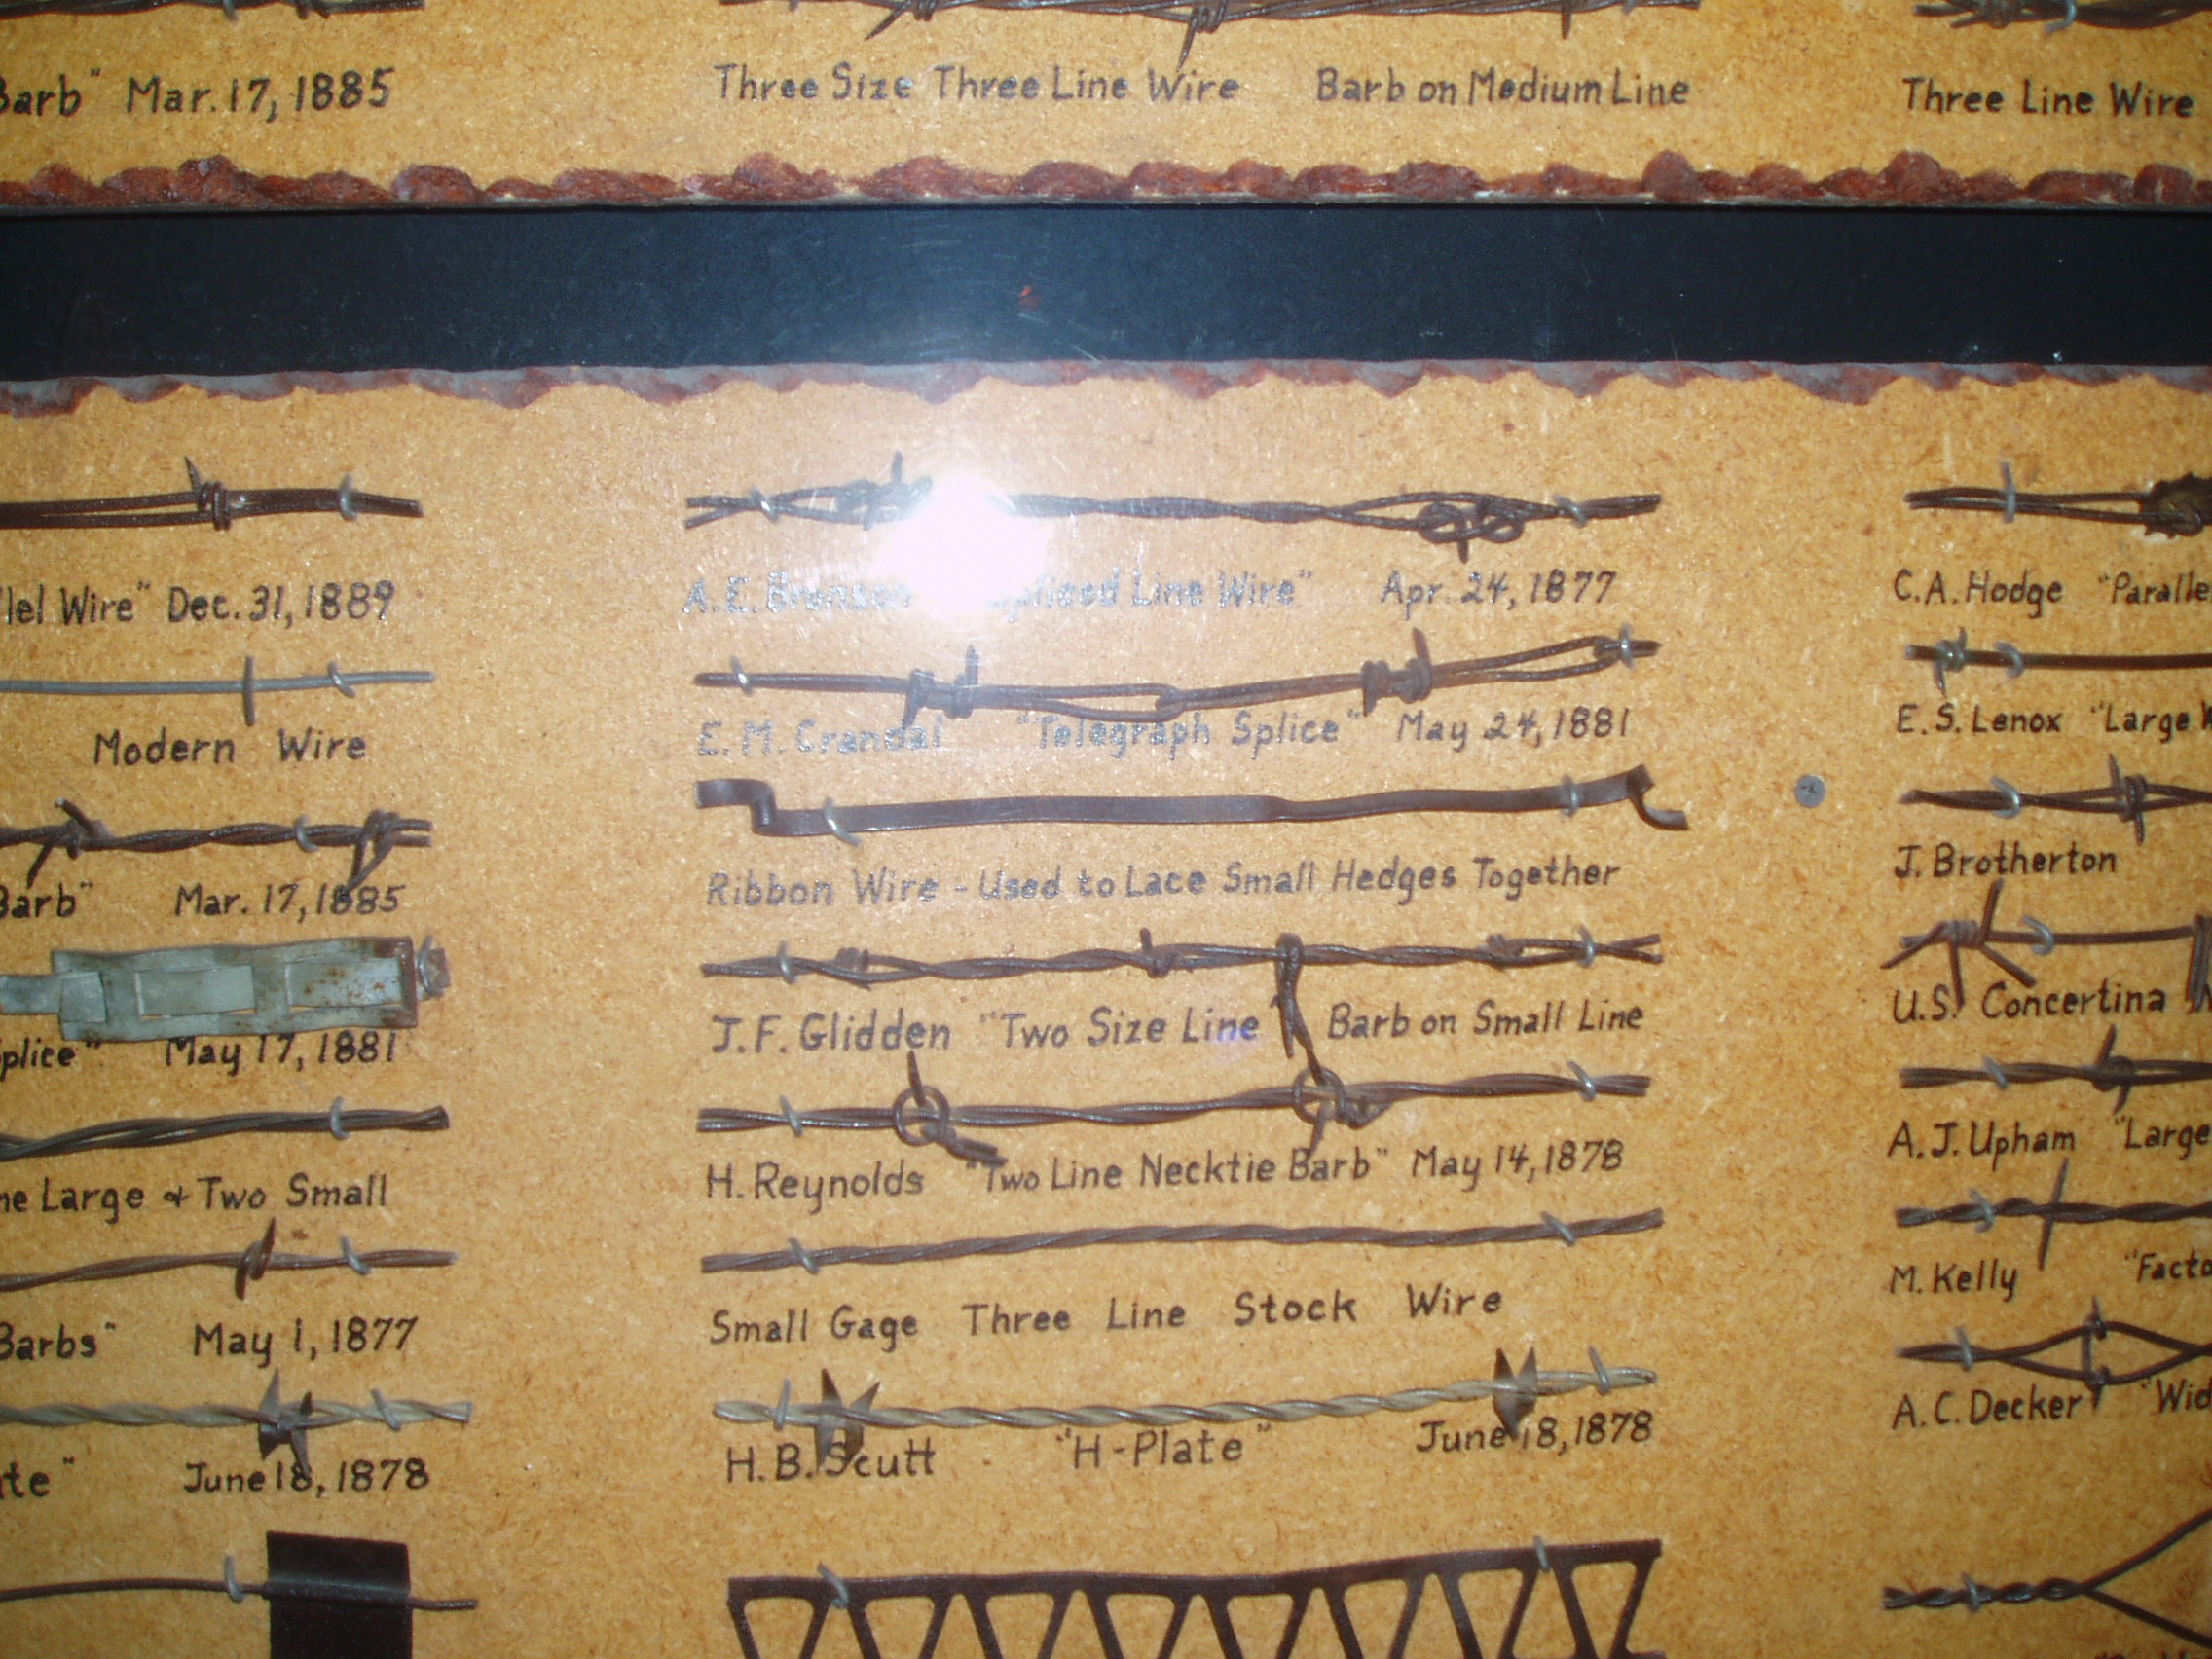 Barb" Mar. 17, 1885
Three Size Three Line Wire Barb on Medium Line
Three Line Wire
llel Wire" Dec. 31, 1889
Modern Wire
Barb" Mar. 17, 1885
Splice" May 17, 1881
ne Large & Two Small
Barbs" May 1, 1877
ate" June 18, 1878
A.E. Bronson Spliced Line Wire" Apr. 24, 1877
E.M. Crandal "Telegraph Splice" May 24, 1881
Ribbon Wire - Used to Lace Small Hedges Together
J.F. Glidden "Two Size Line" Barb on Small Line
H. Reynolds "Two Line Necktie Barb" May 14, 1878
Small Gage Three Line Stock Wire
H.B. Scutt "H-Plate" June 18, 1878
C.A. Hodge "Paralle
E.S. Lenox "Large W
J. Brotherton
U.S. Concertina
A.J. Upham "Large
M. Kelly "Facto
A.C. Decker "Wid